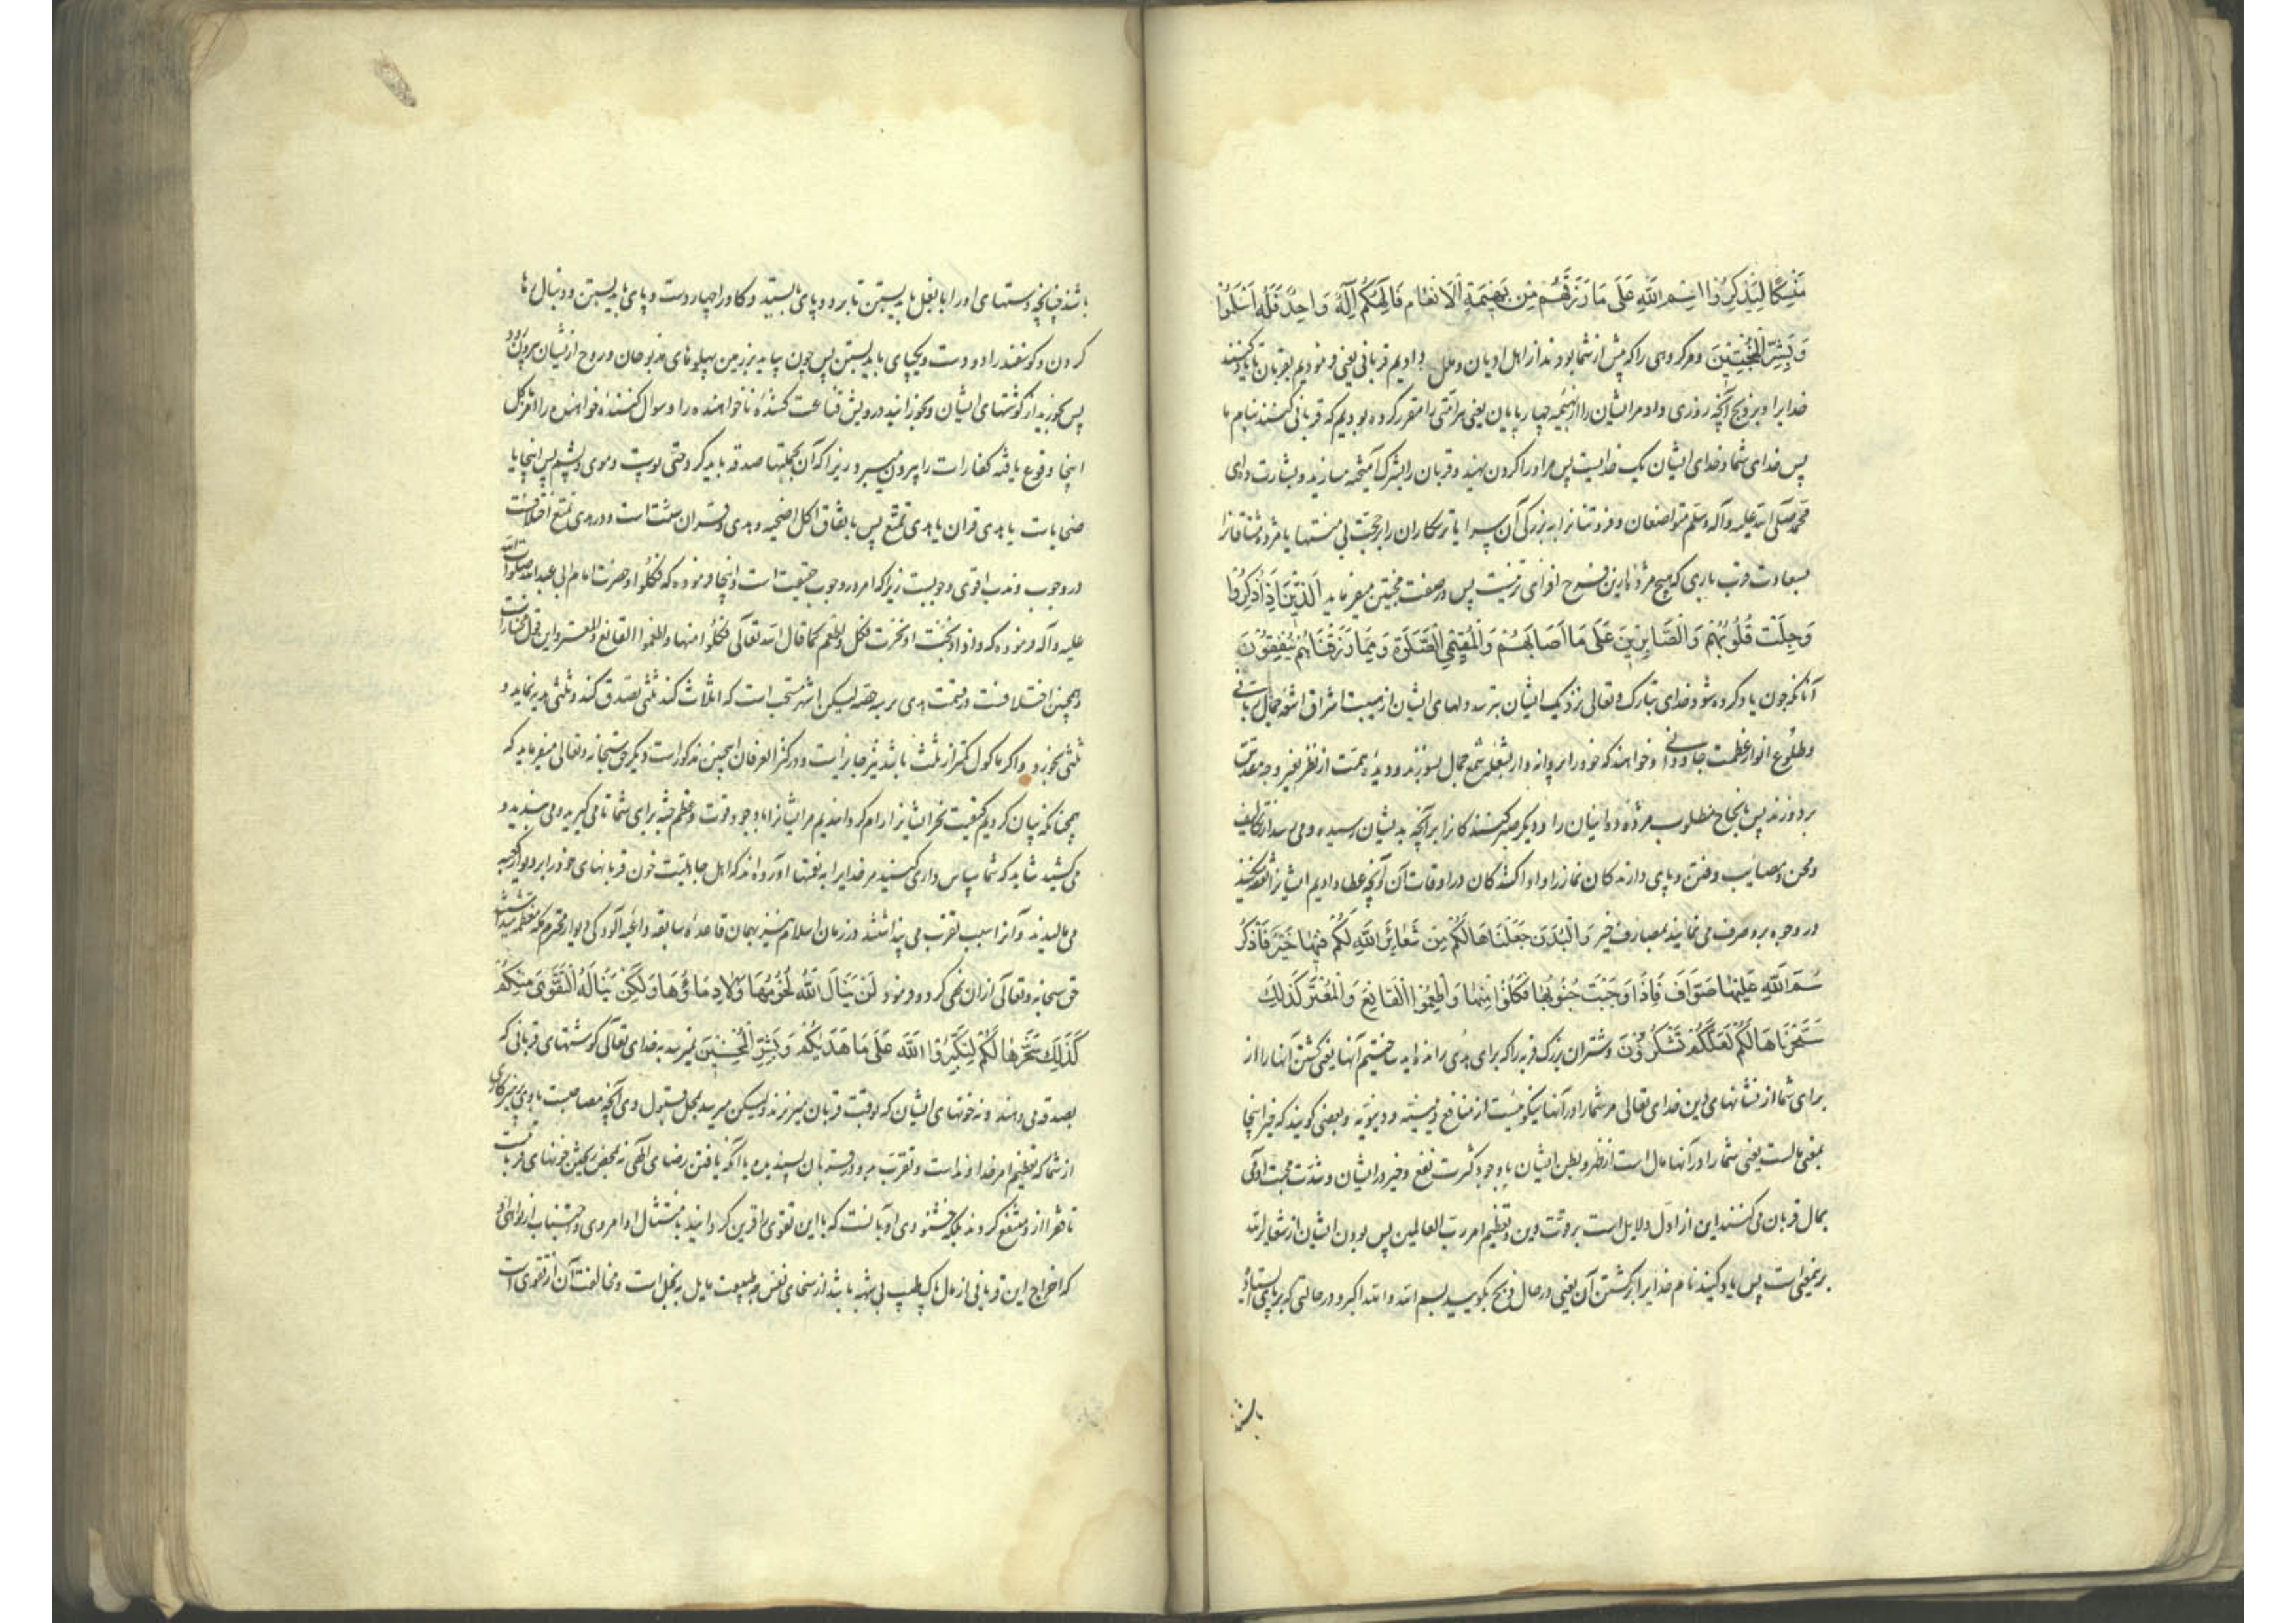 مَنْسَكًا لِيَذْكُرُوا اسْمَ اللَّهِ عَلَى مَا رَزَقَهُمْ مِنْ بَهِيمَةِ الْأَنْعَامِ فَإِلَهُكُمْ إِلَهٌ وَاحِدٌ فَلَهُ أَسْلِمُوا
وَبَشِّرِ الْمُخْبِتِينَ و هر کروهی را که پیش از شما بودند از اهل ادیان و ملل دادیم قربانی یعنی فرمودیم بقربان تا یاد کنند
خدایرا و بر ذبح آنچه روزی داد مر ایشان را از بهیمه چهارپایان یعنی هر امتی را مقرر کرده بودیم که قربانی کنند بنام ما
پس خدای شما و خدای ایشان یک خدایست پس مر او را کردن نهید و قربان را بشرک آمیخته مسازید و بشارت ده ای
محمد صلی الله علیه و آله و سلم متواضعان و فروتنانرا به بزرگی آن سرا یا ترسکاران را برحمت بی منتها یا مژده ده مشتاقانرا
بسعادت قرب باری که هیچ مژده ازین فرح افزای تر نیست پس در صفت مخبتین میفرماید الَّذِينَ إِذَا ذُكِرَ اللَّهُ
وَجِلَتْ قُلُوبُهُمْ وَالصَّابِرِينَ عَلَى مَا أَصَابَهُمْ وَالْمُقِيمِي الصَّلَوةِ وَمِمَّا رَزَقْنَاهُمْ يُنْفِقُونَ
آنانکه چون یاد کرده شود خدای تبارک و تعالی نزدیک ایشان بترسد دلهای ایشان از هیبت اشراق اشعه جمال ربانی
و طلوع انوار عظمت جاودانی و خواهند که خود را پروانه وار بشعله شمع جمال بسوزند و دیده همت از نظر بغیر وجه مقدس
بردوزند پس بانجاح مطلوب مژده ده اینان را و دیگر صبر کنندکانرا بر آنچه بدیشان رسیده و می رسد از تکالیف
و محن و مصایب و فتن و بپای دارندکان نماز را و ادا کنندکان در اوقات آن و آنچه عطا دادیم ایشانرا نفقه میکنند
در وجوه بر و صرف می نمایند بمصارف خیر وَالْبُدْنَ جَعَلْنَاهَا لَكُمْ مِنْ شَعَائِرِ اللَّهِ لَكُمْ فِيهَا خَيْرٌ فَاذْكُرُوا
اسْمَ اللَّهِ عَلَيْهَا صَوَافَّ فَإِذَا وَجَبَتْ جُنُوبُهَا فَكُلُوا مِنْهَا وَأَطْعِمُوا الْقَانِعَ وَالْمُعْتَرَّ كَذَلِكَ
سَخَّرْنَاهَا لَكُمْ لَعَلَّكُمْ تَشْكُرُونَ و شتران بزرک فربه را که برای هدی رانده اید ساختیم آنها یعنی کشتن آنها را از
برای شما از نشانهای دین خدای تعالی مر شما را در آنها نیکوئیست از منافع دینیه و دنیویه و بعضی کویند که خیر اینجا
بمعنی مالست یعنی شما را در آنها مال است از ظهر و بطن ایشان با وجود کثرت نفع و خیر در ایشان و شدت محبت آدمی
بمال قربان می کنند این از ادل دلایل است بر قوت دین و تعظیم امر رب العالمین پس بودن ایشان از شعایر الله
برینمعنی است پس یاد کنید نام خدایرا بر کشتن آن یعنی در حال ذبح بکویید بسم الله والله اکبر و در حالتی که بر پای ایستاده
باشد چنانچه دستهای او را با بغل باید بستن تا بر دو پای بایستد و کاو را چهار دست و پای باید بستن و دنبال رها
کردن و کوسفند را دو دست و یکپای باید بستن پس چون بیاید بر زمین پهلوهای مذبوحان و روح از ایشان بیرون رود
پس بخورید از کوشتهای ایشان و بخورانید درویش قناعت کننده ناخواهنده را و سوال کننده خواهنده را امر بکل
اینجا وقوع یافته کفارات را بیرون میبرد زیرا که آن بجملتها صدقه باید کرد حتی پوست و موی و پشم پس اینجا یا
ضحایاست یا هدی قران یا هدی تمتع پس باتفاق اکل اضحیه و هدی قران سنت است و در هدی تمتع اختلافست
در وجوب و ندب اقوی وجوبست زیرا که امر در وجوب حقیقت است و اینجا فرموده که فکلوا و حضرت امام ابی عبدالله صلوات الله
علیه و آله فرموده که و اذا ذبحت او نحرت فکل و اطعم کما قال الله تعالی فکلوا منها و اطعموا القانع والمعتر و این قول مختار است
و همچنین اختلافست در قسمت هدی بر سه حصه لیکن اشهر مستحب است که اثلاث کند ثلثی تصدق کند و ثلثی هدیه نماید و
ثلثی بخورد و اکر ماکول کمتر از ثلث باشد نیز جایز است و در کنز العرفان همچنین مذکور است دیکر حق سبحانه و تعالی میفرماید که
همچنانکه بیان کردیم کیفیت نحر ایشانرا رام کردانیدیم مر ایشانرا با وجود قوت و عظم جثه برای شما تا می کیرید و می بندید و
می کشید شاید که شما سپاس داری کنید مر خدایرا به نعمتها آورده اند که اهل جاهلیت خون قربانیهای خود را بر دیوار کعبه
می مالیدند و آنرا سبب تقرب می پنداشتند و در زمان اسلام نیز بهمان قاعده سابقه داعیه آلودکی دیوار محترم مکه معظمه میداشتند
حق سبحانه و تعالی از ان نهی کرد و فرمود لَنْ يَنَالَ اللَّهَ لُحُومُهَا وَلَا دِمَاؤُهَا وَلَكِنْ يَنَالُهُ التَّقْوَى مِنْكُمْ
كَذَلِكَ سَخَّرَهَا لَكُمْ لِتُكَبِّرُوا اللَّهَ عَلَى مَا هَدَيكُمْ وَبَشِّرِ الْمُحْسِنِينَ نمیرسد به خدای تعالی کوشتهای قربانی که
بصدقه می دهند و نه خونهای ایشان که بوقت قربان میریزند و لیکن میرسد بمحل قبول وی آنچه مصاحبت با وی پرهیزکاری
از شما که تعظیم امر خداوند است و تقرب بدو در قربان پسندیده یا آنکه یافتن رضای الهی نه بمحض ریختن خونهای قربانیست
تا فقرا از او منتفع کردند بلکه خشنودی او آنست که با این تقوی را قرین کردانید بامتثال اوامر وی و اجتناب از نواهی او
که اخراج این قربانی از مال پاک طیب بی شبهه باشد از سخای نفس چه طبیعت مایل به بخل است و مخالفت آن از تقوی است
باشد